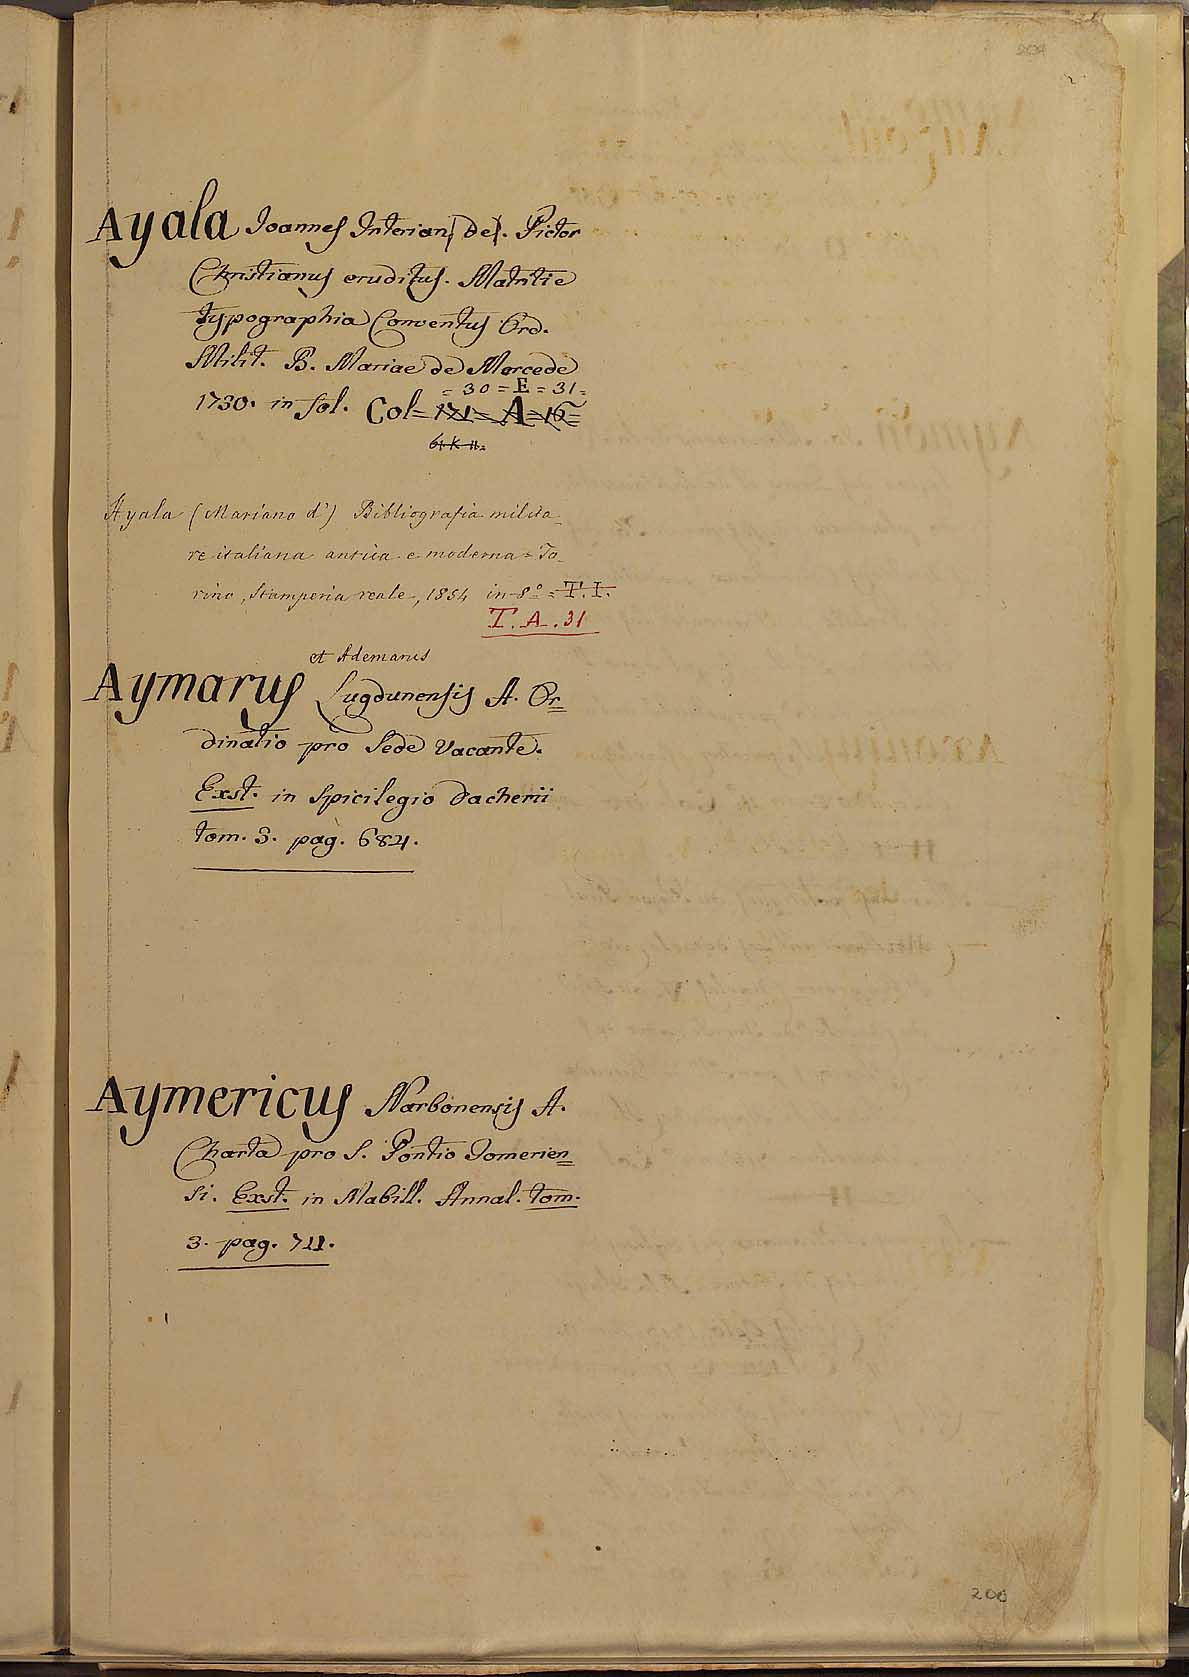 Ayala Joannes Interian (de). Pictor
Christianus eruditus. Matritie
typographia Conventus Ord.
Milit. B. Mariae de Mercede
= 30 = E = 31 =
1730. in fol. Col = 171 = A = 16 =
Ayala (Mariano d') Bibliografia milita_
re italiana antica e moderna = To_
rino, Stamperia reale, 1854 in-8º = T. I.
T. A. 31
et Ademarus
Aymarus Lugdunensis A. Or=
dinatio pro Sede Vacante.
Exst. in Spicilegio Dacherii
tom. 3. pag. 684.
Aymericus Narbonensis A.
Charta pro S. Pontio Tomerien=
si. Exst. in Mabill. Annal. tom.
3. pag. 711.
206